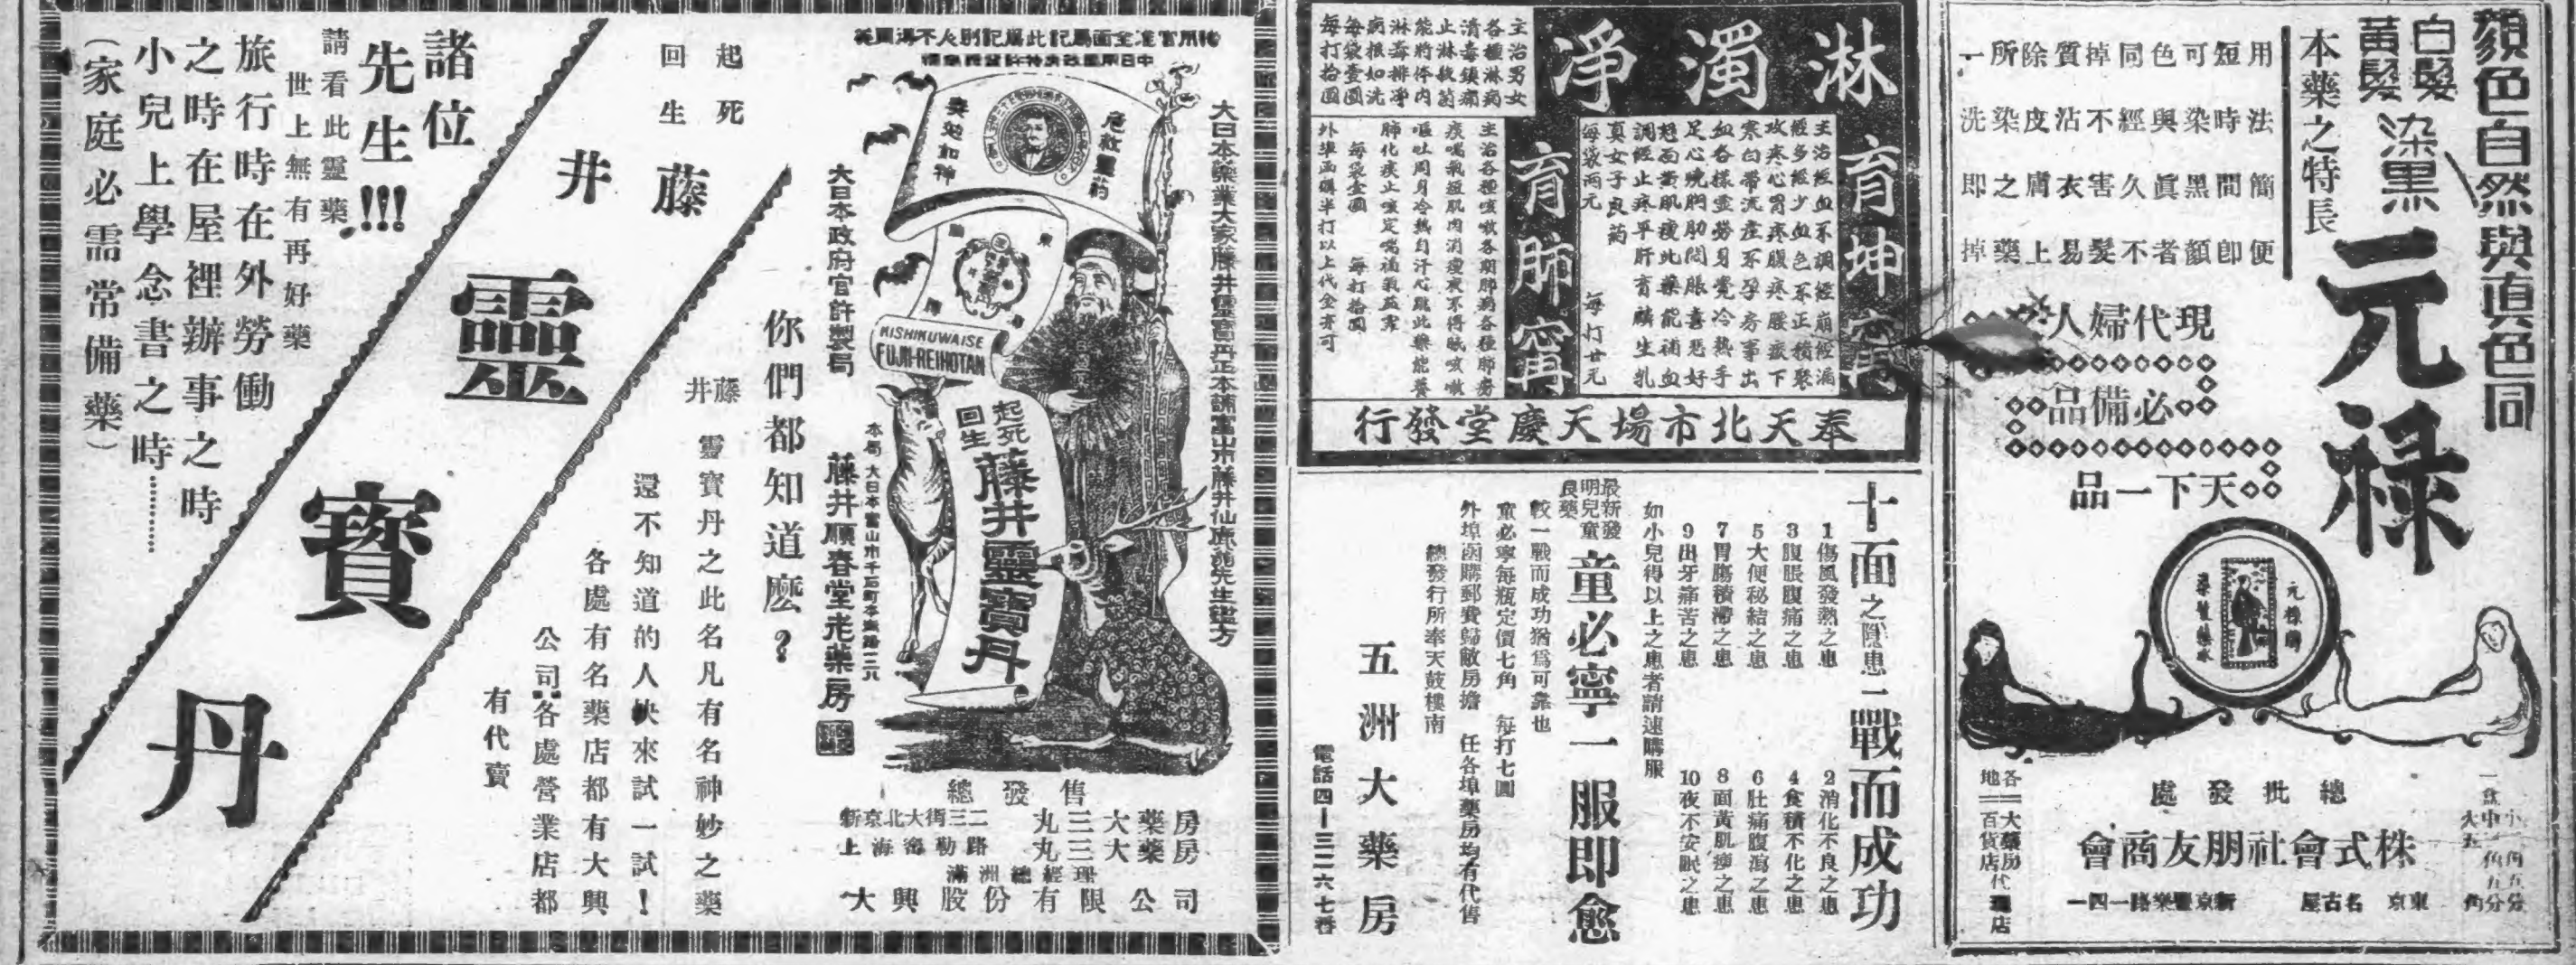 顏色自然與真色同
白髮
黃髮
染黑
元祿
本藥之特長
用法簡便
短時間即
可染黑顏
色與真者
同經久不
掉不害髮
質沾衣易
除皮膚上
所染之藥
一洗即掉
現代婦人
必備品
天下一品
元祿牌
總批發處
株式會社朋友商會
東京 名古屋 新京豐樂路一四一
各地
大藥房
百貨店
代理店
淋濁淨
主治男女
各種淋病
清毒鎮痛
止淋殺菌
能將停內
淋毒排淨
病根如洗
每袋壹圓
每打拾圓
育坤甯
主治經血不調經崩經漏
經多經少血色不正積聚
攻疼心胃疼腹疼腰痠下
寒白帶流產不孕房事出
血各樣虛勞身覺冷熱手
足心燒胸肋悶脹喜惡好
怒面黃肌瘦此藥能補血
調經止疼平肝育麟生乳
真女子良葯
每袋兩元 每打廿元
育肺甯
主治各種咳嗽各期肺病各種肺癆
痰喘氣短肌肉消瘦夜不得眠咳嗽
嘔吐周身冷熱自汗心跳此藥能養
肺化痰止咳定喘補氣益霖
每袋壹圓 每打拾圓
外埠函購半打以上代金亦可
奉天北市場天慶堂發行
十面之隱患一戰而成功
1傷風發熱之患
2消化不良之患
3腹脹腹痛之患
4食積不化之患
5大便秘結之患
6肚痛腹瀉之患
7胃腸積滯之患
8面黃肌瘦之患
9出牙痛苦之患
10夜不安眠之患
如小兒得以上之患者請速購服
最新發
明兒童
良藥
童必寧一服即愈
較一戰而成功猶爲可靠也
童必寧每瓶定價七角 每打七圓
外埠函購郵費歸敝房擔 任各埠藥房均有代售
總發行所奉天鼓樓南
五洲大藥房
電話四—三二六七番
大日本藥業大家藤井靈寶丹正本舖富山市藤井仙鹿翁先生鑑方
起死
回生
藤井靈寶丹
KISHIKUWAISE
FUJII-REIHOTAN
大日本政府官許製局
藤井順春堂老藥房
總發售
新京北大街三二 丸三大藥房
上海海勒路 丸三大藥房
滿洲總經理
大興股份有限公司
你們都知道麽?
藤井
靈寶丹之此名凡有名神妙之藥
還不知道的人快來試一試!
各處有名藥店都有大興
公司各處營業店都
有代賣
起死
回生
藤井
靈寶丹
諸位
先生!!!
請看此靈藥
世上無有再好藥
旅行時在外勞働
之時在屋裡辦事之時
小兒上學念書之時…………
(家庭必需常備藥)